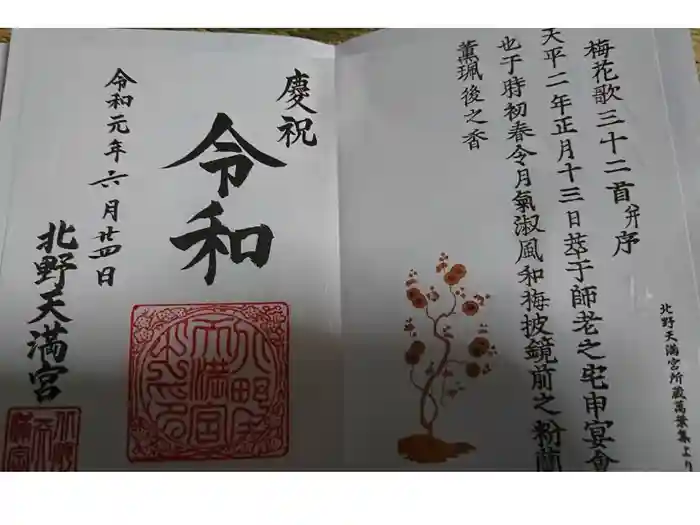 梅花歌三十二首并序
天平二年正月十三日萃于師老之宅申宴會
也于時初春令月氣淑風和梅披鏡前之粉蘭
薫珮後之香
北野天満宮所蔵萬葉集より
慶祝
令和
令和元年六月廿四日
北野天満宮